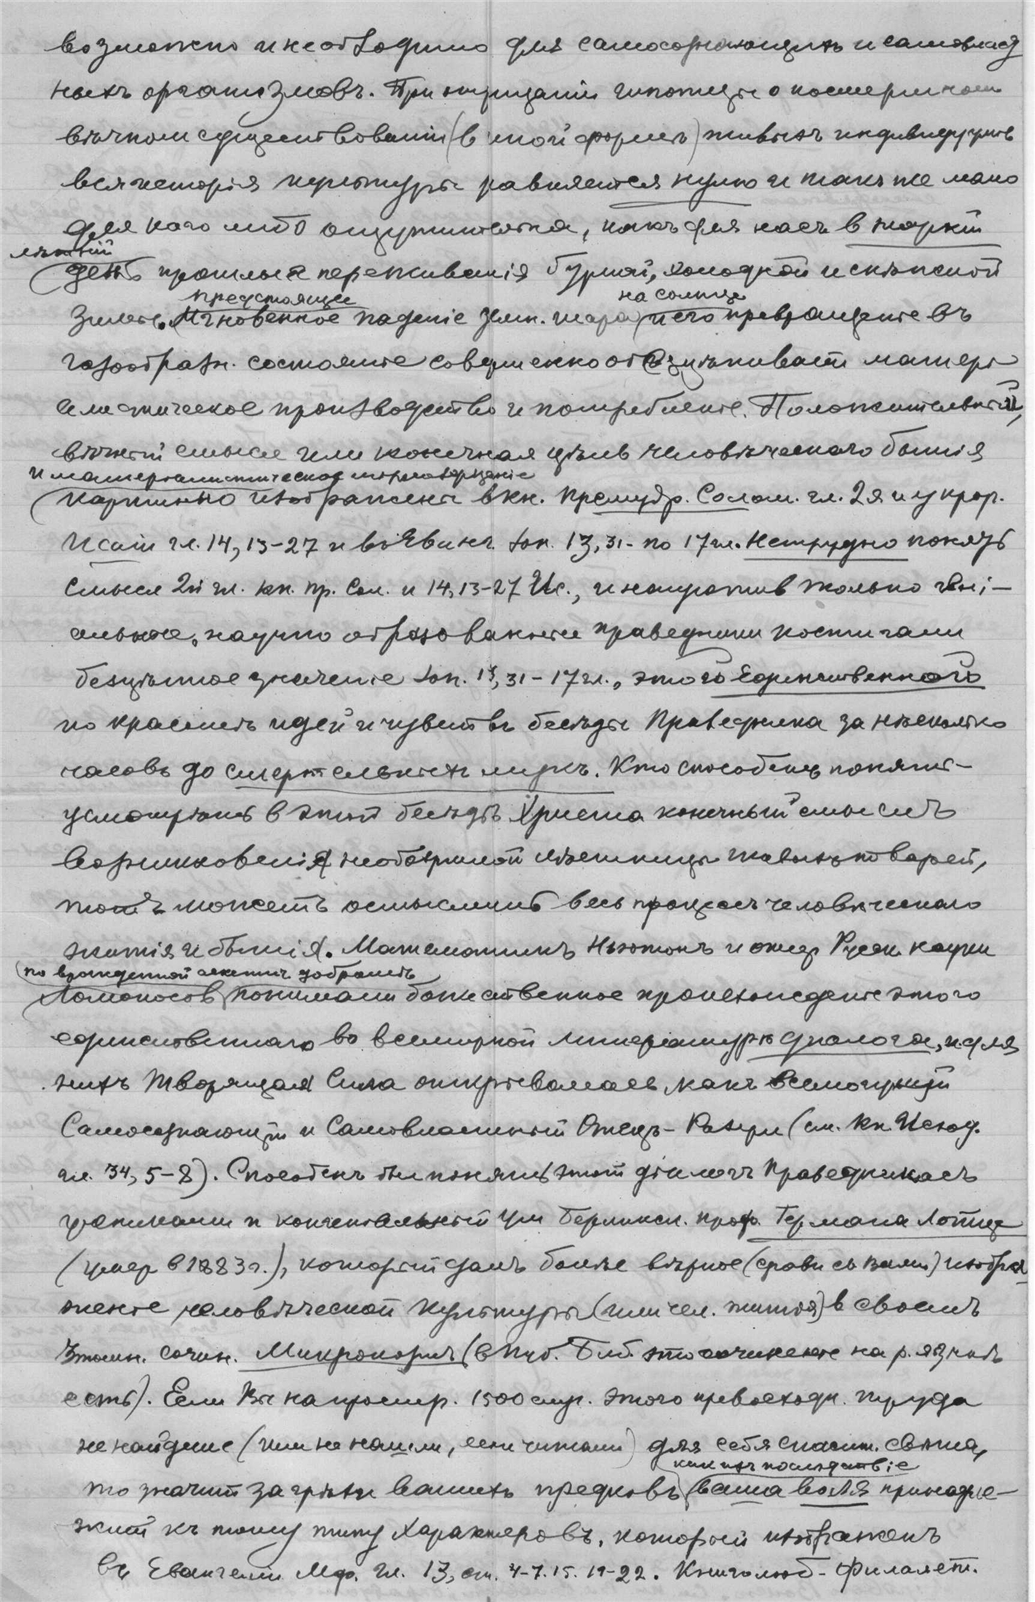 возможно и необходимо для самосознающихъ и самовласт
ныхъ организмовъ. При отрицаніи гипотезы о посмертном
вѣчном существованіи (в иной формѣ) живых индивидуумов
вся исторія культуры равняется нулю и такъ же мало
для кого либо ощутительна, какъ для насъ в жаркій
лѣтній
день прошлыя переживанія бурной, холодной и снѣжной
предстоящее на солнце
зимы. Мгновенное паденіе земн. шара и его превращеніе въ
газообразн. состояніе совершенно обезцѣниваетъ матері
алистическое производство и потребленіе. Положительный,
вѣчный смыслъ или конечная цѣль человѣческаго бытія
и матеріалистическое міросозерцаніе
картинно изображены в кн. Премудр. Солом. гл. 2я и у прор.
Исаіи гл. 14, 13-27 и въ Еванг. Іоан. 13, 31- по 17 гл. Нетрудно понять
смысл 2й гл. кн. пр. Сол. и 14, 13-27 Ис., и напротив только гені-
альные, научно образованные праведники постигали
безцѣнное значеніе Іоан. 13, 31-17 гл., этого единственного
по красотѣ идей и чувствъ бесѣды Праведника за нѣсколько
часовъ до смертельныхъ мукъ. Кто способенъ понять-
усмотрѣть в этой бесѣдѣ Христа конечный смыслъ
возникновенія необозримой лѣстницы живыхъ тварей,
тотъ можетъ осмыслить весь процессъ человѣческаго
житія и бытія. Математикъ Ньютонъ и отец Русск. науки
(по врожденной добротѣ
Ломоносов понимали божественное происхожденіе этого
единственнаго во всемірной литературѣ діалога, и для
нихъ Творящая Сила открывалась какъ всемогущій
Самосознающій и Самовластный Отецъ-Разум (см. кн. Исход.
гл. 34, 5-8). Способенъ был понять этот діалогъ Праведника съ
учениками и ум Берлинск. проф. Германа Лотце
(умер в 1883 г.), который далъ болѣе вѣрное (сравн. съ вами) изобра
женіе человѣческой культуры (или чел. житія) в своемъ
сочин. Микрокозмъ (в Пуб. Биб. это сочиненіе на р. языкѣ
есть). Если Вы на простр. 1500 стр. этого превосходн. труда
не найдете (или не нашли, если читали) для себя спасит. свѣта,
какъ их послѣдствіе
то значит за грѣхи ваших предковъ ваша воля принадле-
жит къ тому типу характеровъ, который изображенъ
въ Евангеліи Мф. гл. 13, ст. 4-7. 15. 19-22. Книголюб-Филалет.